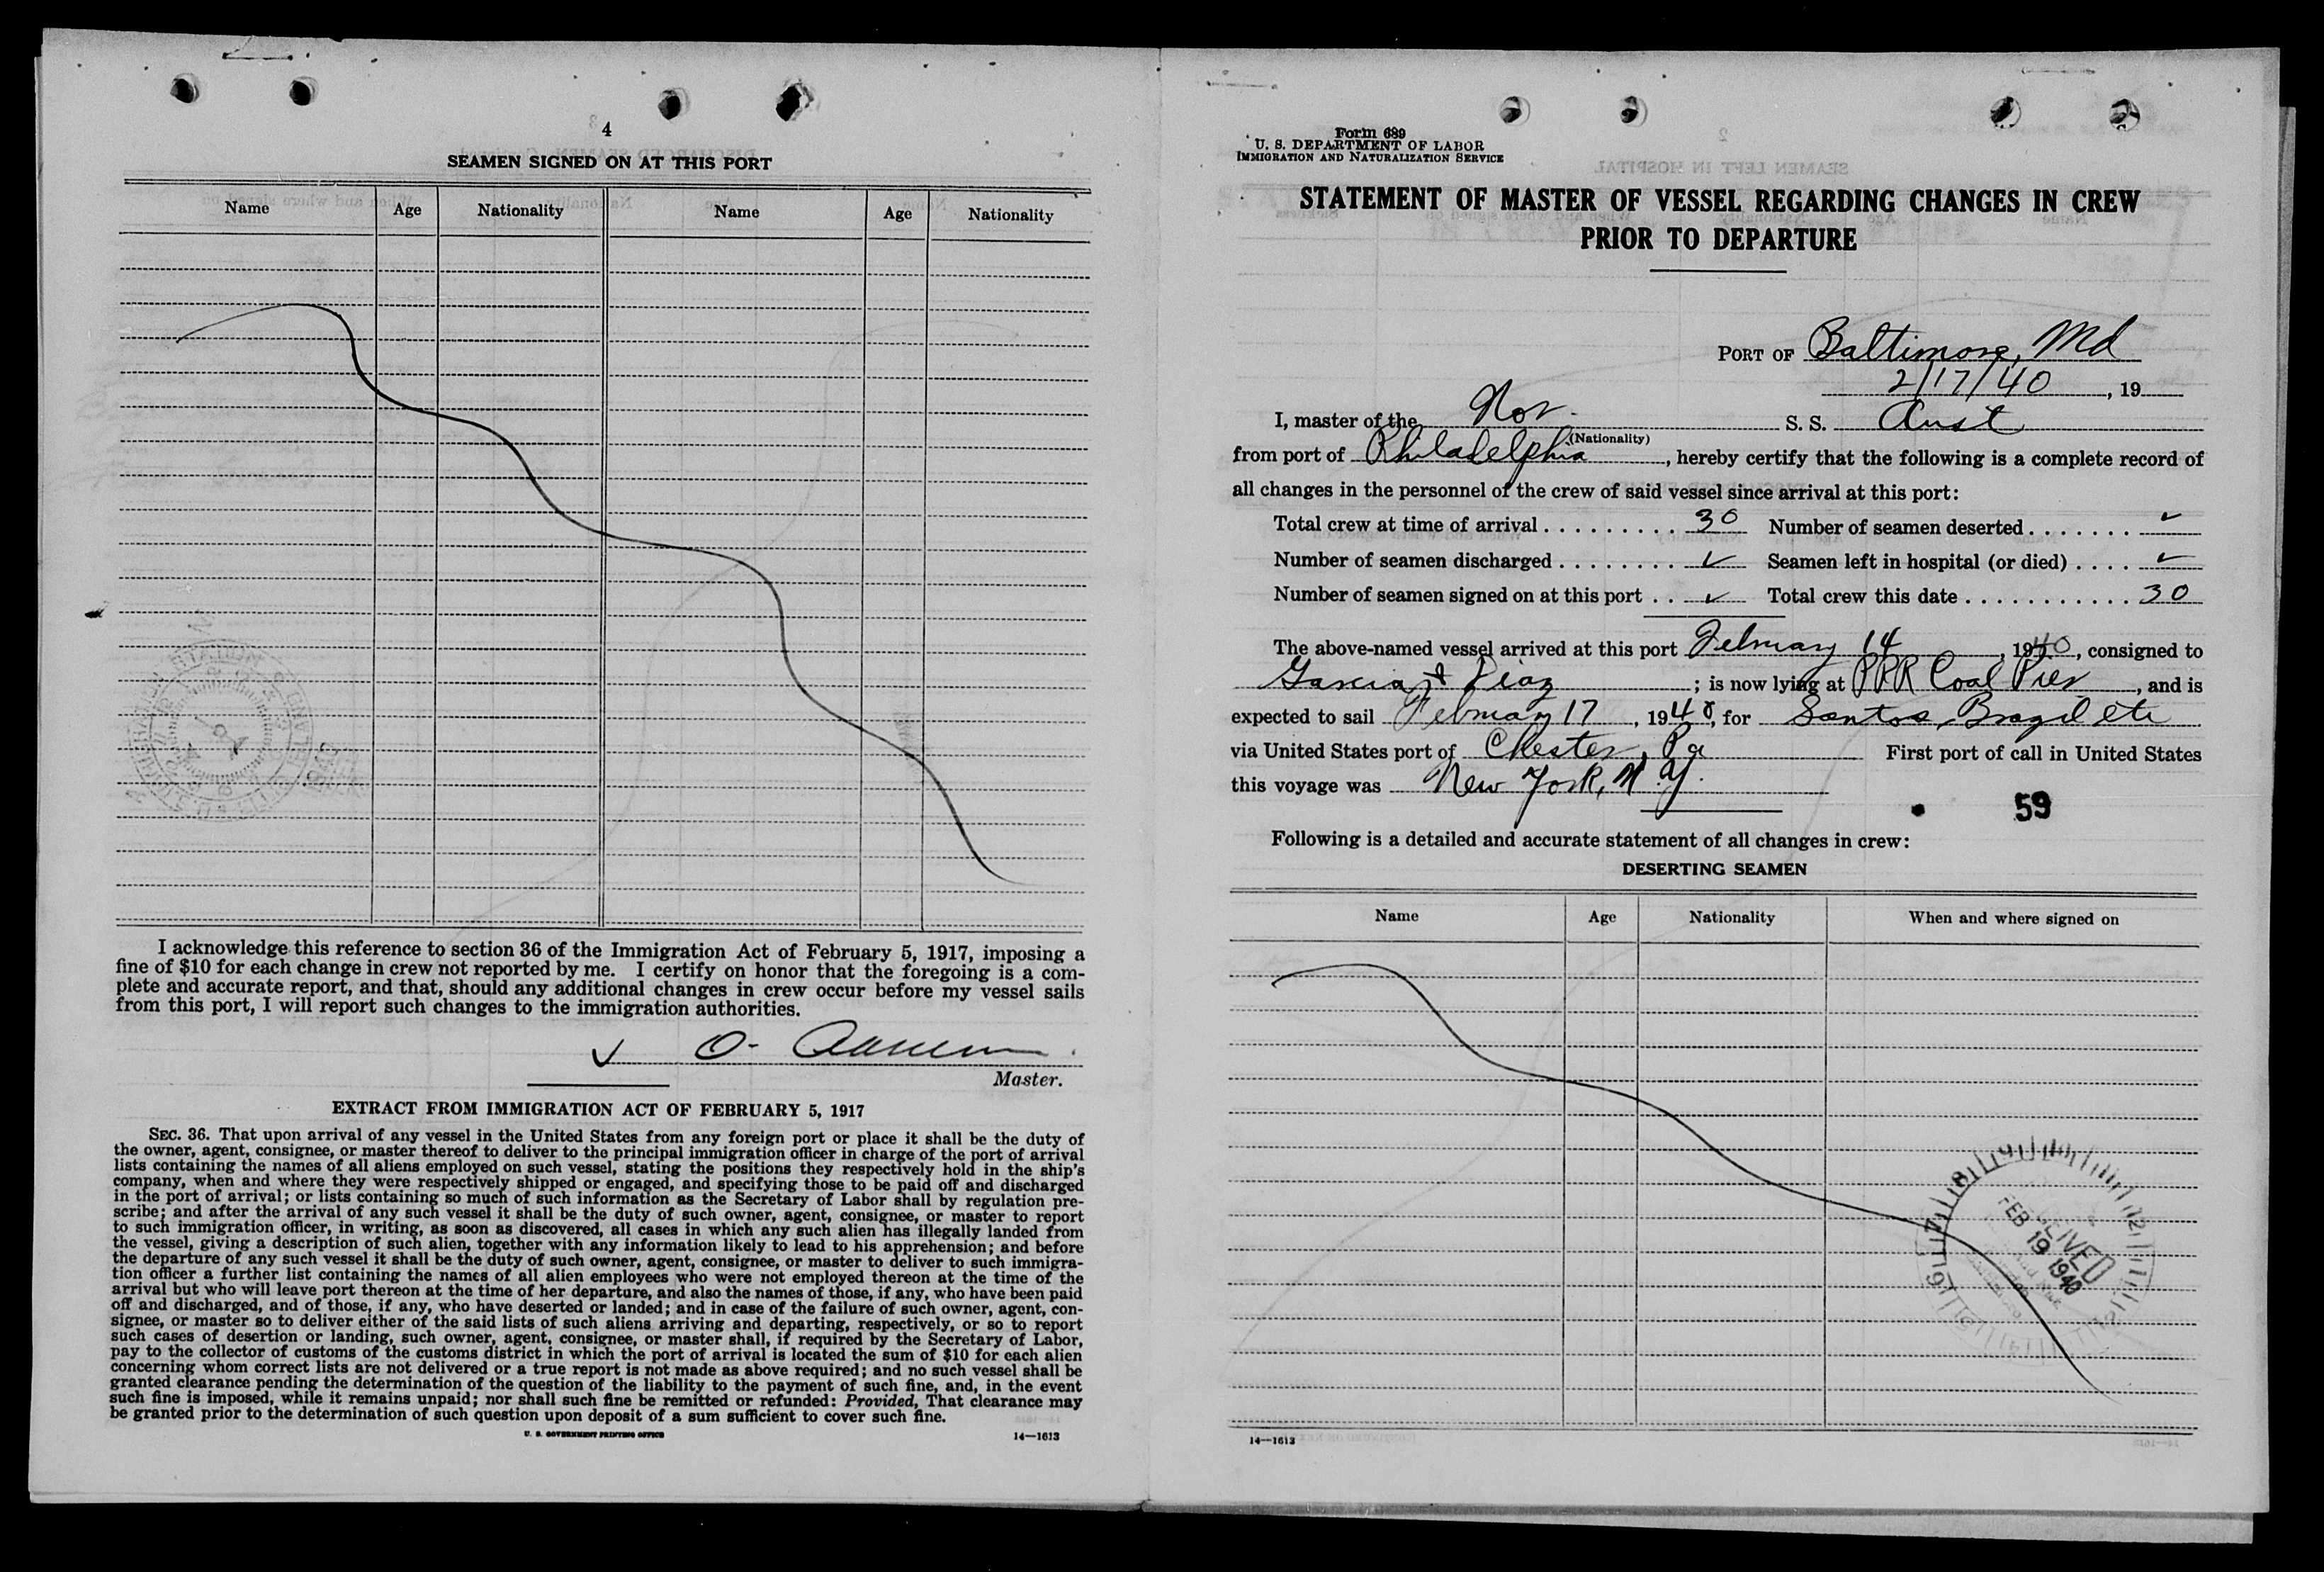 4
SEAMEN SIGNED ON AT THIS PORT
Name Age Nationality Name Age Nationality
I acknowledge this reference to section 36 of the Immigration Act of February 5, 1917, imposing a
fine of $10 for each change in crew not reported by me. I certify on honor that the foregoing is a com-
plete and accurate report, and that, should any additional changes in crew occur before my vessel sails
from this port, I will report such changes to the immigration authorities.
✓ O-
Master.
EXTRACT FROM IMMIGRATION ACT OF FEBRUARY 5, 1917
SEC. 36. That upon arrival of any vessel in the United States from any foreign port or place it shall be the duty of
the owner, agent, consignee, or master thereof to deliver to the principal immigration officer in charge of the port of arrival
lists containing the names of all aliens employed on such vessel, stating the positions they respectively hold in the ship's
company, when and where they were respectively shipped or engaged, and specifying those to be paid off and discharged
in the port of arrival; or lists containing so much of such information as the Secretary of Labor shall by regulation pre-
scribe; and after the arrival of any such vessel it shall be the duty of such owner, agent, consignee, or master to report
to such immigration officer, in writing, as soon as discovered, all cases in which any such alien has illegally landed from
the vessel, giving a description of such alien, together with any information likely to lead to his apprehension; and before
the departure of any such vessel it shall be the duty of such owner, agent, consignee, or master to deliver to such immigra-
tion officer a further list containing the names of all alien employees who were not employed thereon at the time of the
arrival but who will leave port thereon at the time of her departure, and also the names of those, if any, who have been paid
off and discharged, and of those, if any, who have deserted or landed; and in case of the failure of such owner, agent, con-
signee, or master so to deliver either of the said lists of such aliens arriving and departing, respectively, or so to report
such cases of desertion or landing, such owner, agent, consignee, or master shall, if required by the Secretary of Labor,
pay to the collector of customs of the customs district in which the port of arrival is located the sum of $10 for each alien
concerning whom correct lists are not delivered or a true report is not made as above required; and no such vessel shall be
granted clearance pending the determination of the question of the liability to the payment of such fine, and, in the event
such fine is imposed, while it remains unpaid; nor shall such fine be remitted or refunded: Provided, That clearance may
be granted prior to the determination of such question upon deposit of a sum sufficient to cover such fine.
U. S. GOVERNMENT PRINTING OFFICE 14—1613
Form 689
U. S. DEPARTMENT OF LABOR
IMMIGRATION AND NATURALIZATION SERVICE
STATEMENT OF MASTER OF VESSEL REGARDING CHANGES IN CREW
PRIOR TO DEPARTURE
PORT OF Baltimore, Md
2/17/40, 19
I, master of the Nor. S. S. Aust
(Nationality)
from port of Philadelphia, hereby certify that the following is a complete record of
all changes in the personnel of the crew of said vessel since arrival at this port:
Total crew at time of arrival 30 Number of seamen deserted ✓
Number of seamen discharged ✓ Seamen left in hospital (or died) ✓
Number of seamen signed on at this port ✓ Total crew this date 30
The above-named vessel arrived at this port February 14, 1940, consigned to
Garcia & Diaz; is now lying at PRR Coal Pier, and is
expected to sail February 17, 1940, for Santos, Brazil etc
via United States port of Chester, Pa First port of call in United States
this voyage was New York, N.Y.
59
Following is a detailed and accurate statement of all changes in crew:
DESERTING SEAMEN
Name Age Nationality When and where signed on
FEB 19 1940
14—1613